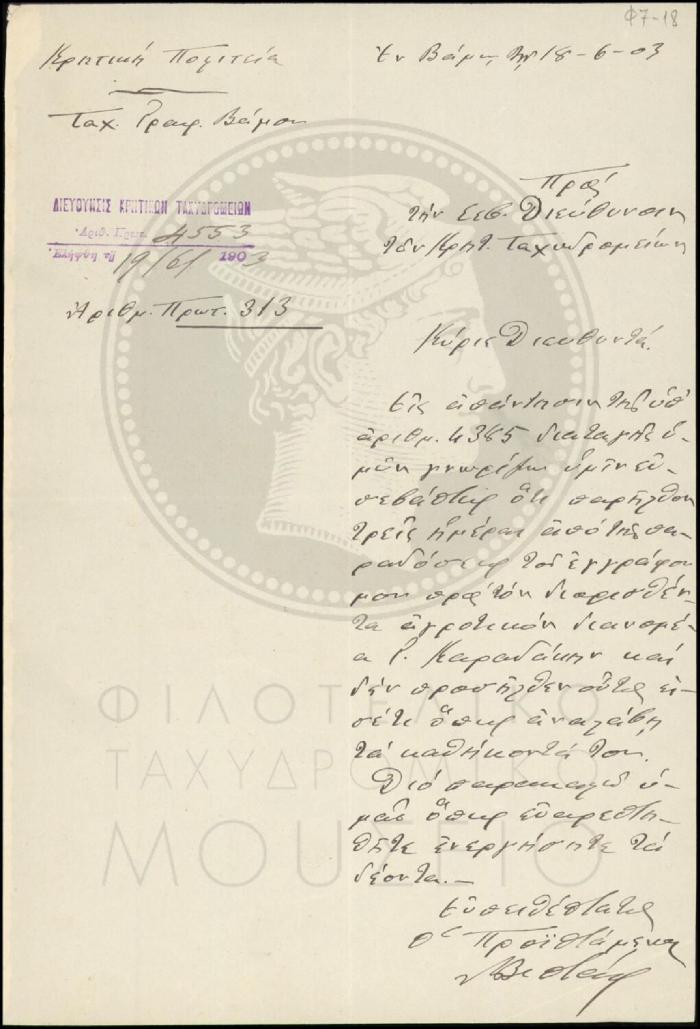 Φ7-18
Κρητική Πολιτεία
Ἐν Βάμῳ τῇ 18-6-03
Ταχ. Γραφ. Βάμου
ΔΙΕΥΘΥΝΣΙΣ ΚΡΗΤΙΚΩΝ ΤΑΧΥΔΡΟΜΕΙΩΝ
Ἀριθ. Πρωτ. 4553
19/6/ 1903
Ἀριθμ. Πρωτ. 313
Πρὸς
τὴν Σεβ. Διεύθυνσιν
τῶν Κρητ. Ταχυδρομείων
Κύριε Διευθυντά.
Εἰς ἀπάντησιν τῆς ὑπ'
ἀριθμ. 4385 διαταγῆς ὑ-
μῶν γνωρίζω ὑμῖν εὐ-
σεβάστως ὅτι παρῆλθον
τρεῖς ἡμέραι ἀπὸ τῆς πα-
ραδόσεως τοῦ ἐγγράφου
μου πρὸς τὸν διορισθέν-
τα ἀγροτικὸν διανομέ-
α Γ. Καραδάκην καὶ
δὲν προσῆλθεν οὗτος εἰ-
σέτι ὅπως ἀναλάβῃ
τὰ καθήκοντά του.
Διὸ παρακαλῶ ὑ-
μᾶς ὅπως εὐαρεστη-
θῆτε ἐνεργήσητε τὰ
δέοντα.-
Εὐπειθέστατος
Ὁ Προϊστάμενος
ΦΙΛΟΤΕΛΙΚΟ
ΤΑΧΥΔΡΟΜΙΚΟ
ΜΟΥΣΕΙΟ